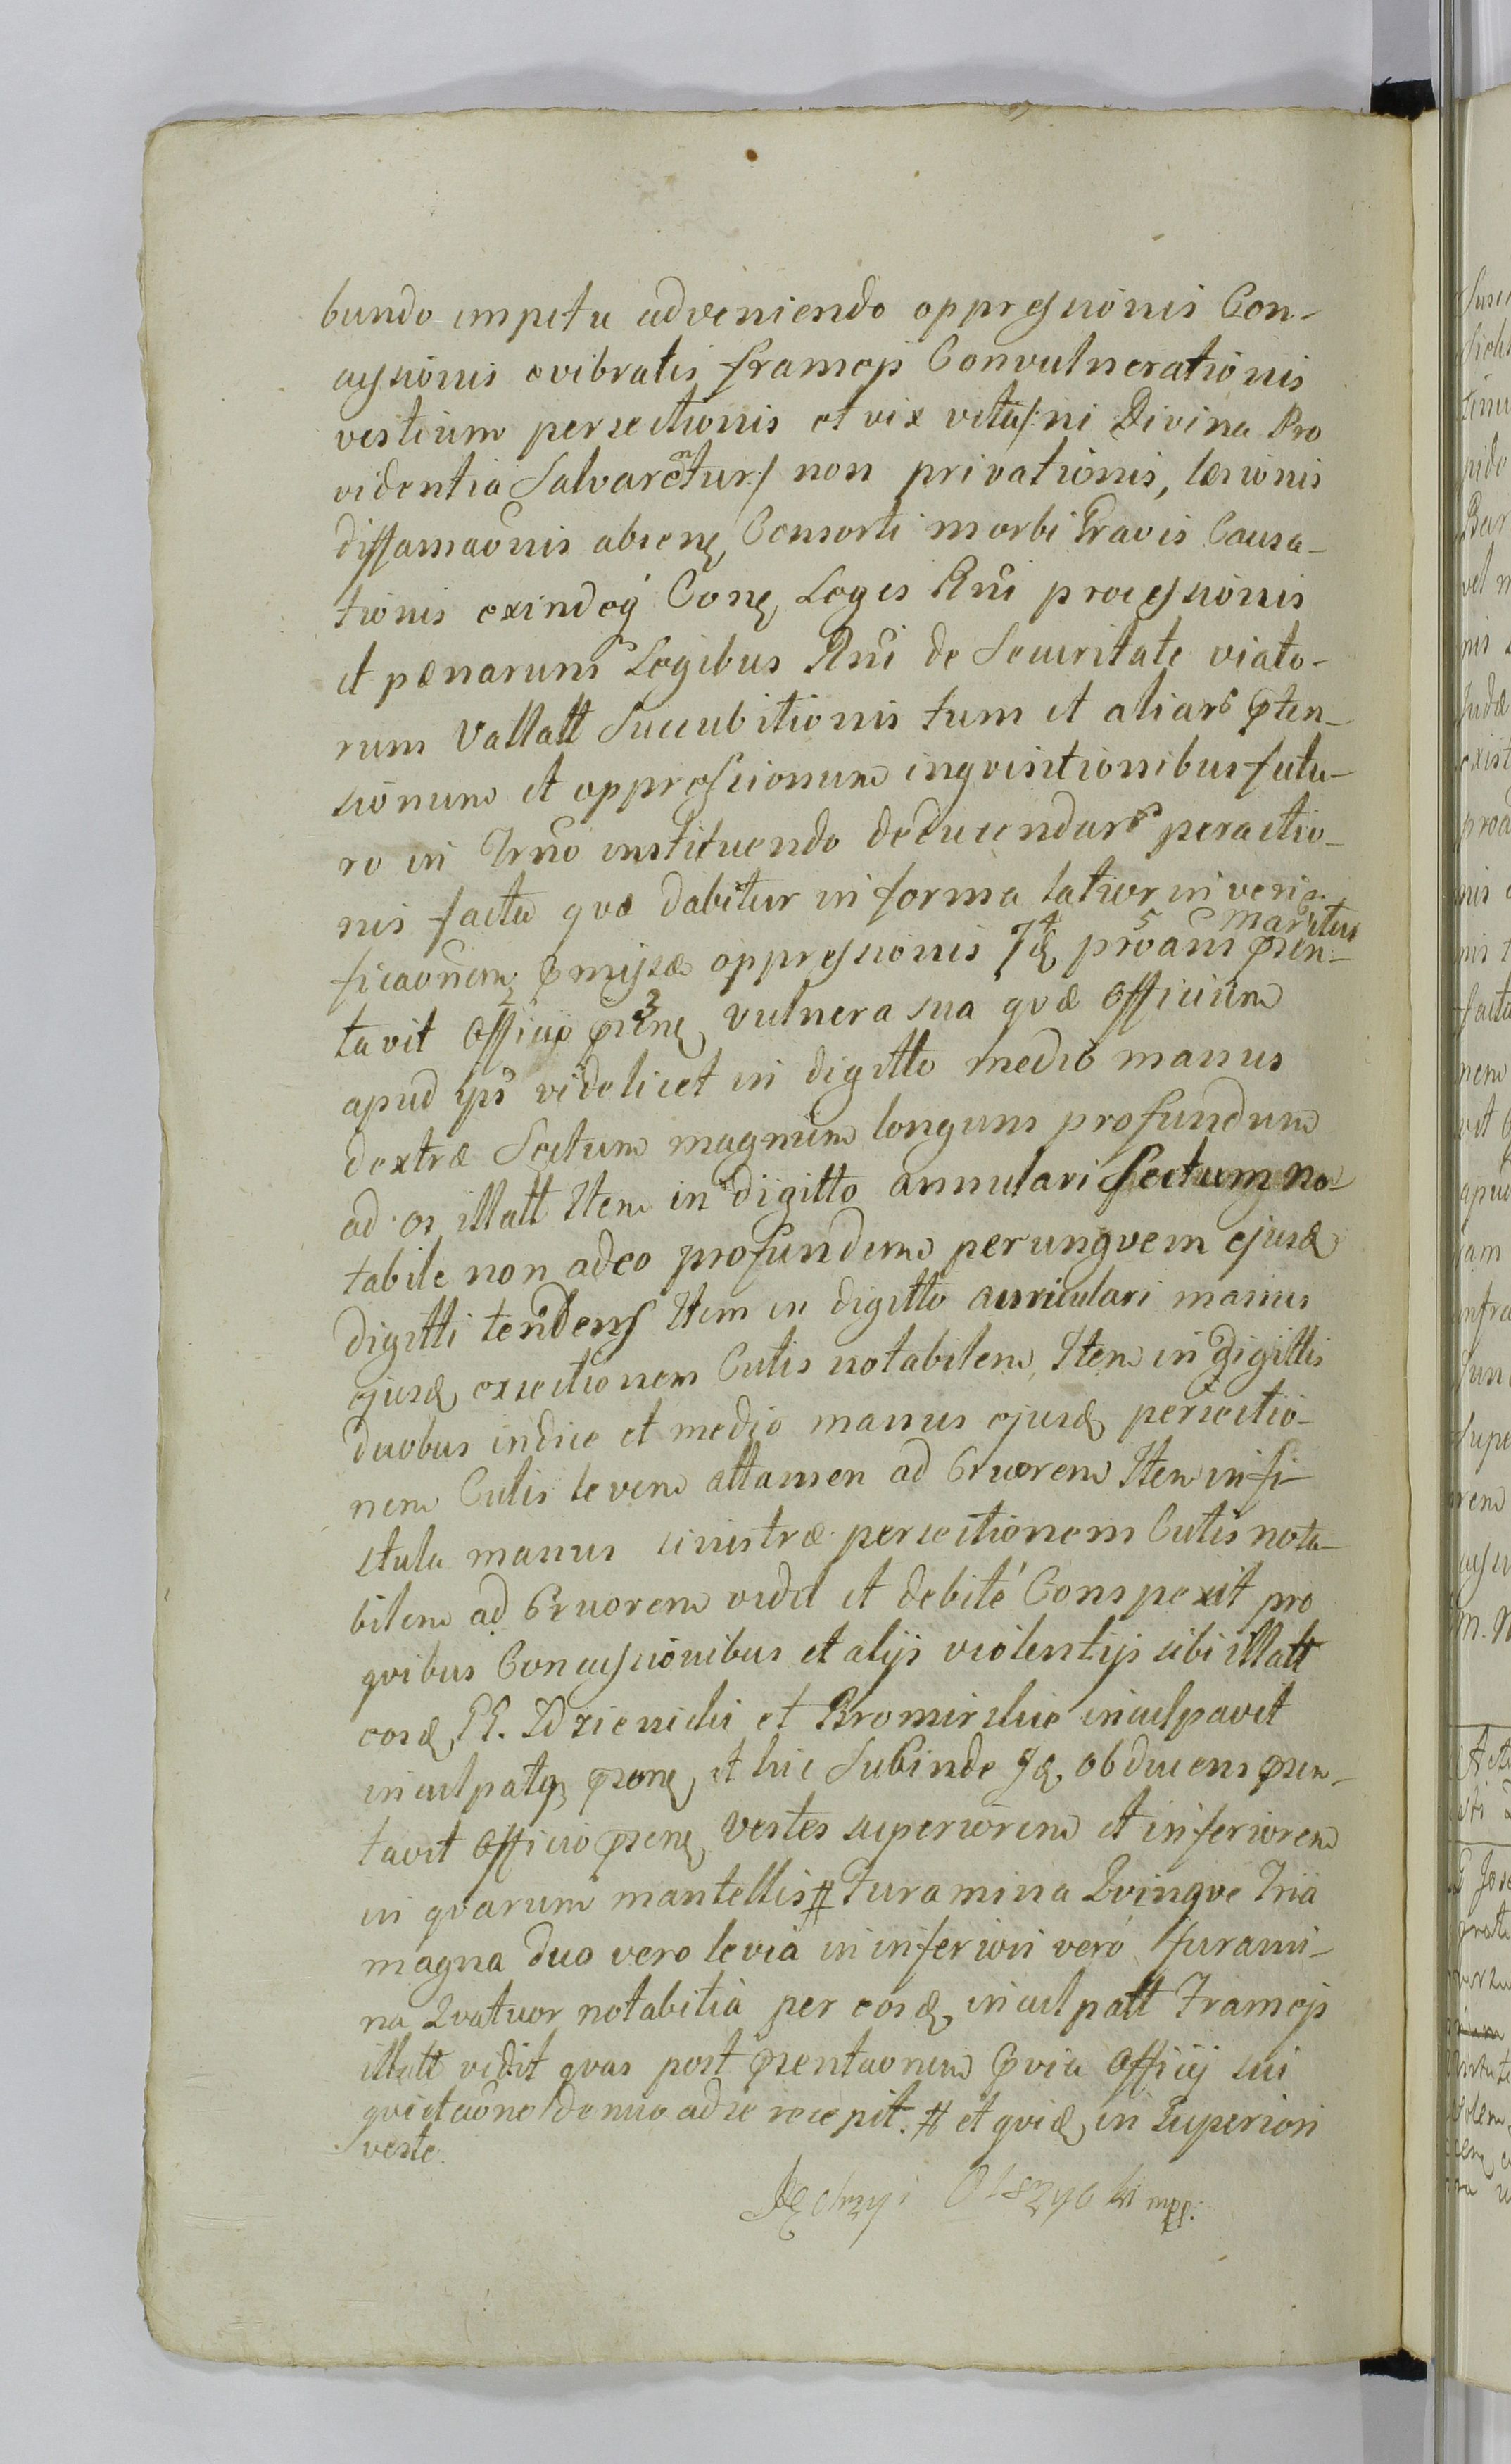 bundo impetu adveniendo oppressionis Con-
cussionis evibratis frameis Convulnerationis
vestium persectionis et vix vita /: ni Divina Pro
videntia Salvarentur :/ non privationis, læsionis
diffamaōnis absenę Consorti morbi Gravis Causa-
tionis exindeq́ Conę Leges Rńi processionis
et pænarum Legibus Rńi de Securitate viato-
rum Vallatt Succubitionis tum et aliarō pten-
sionum et oppressionum inqvisitionibus futu-
ro in Trńo instituendo deducendarō peractio-
nis facta qvæ dabitur in forma latior in veri-
ficaōnem pmissæ oppressionis Idę proāns psen-
maritus
tavit Officio psenę vulnera sua qvæ Officium
apud ipś videlicet in digitto medio manus
dextræ Sectum magnum longum profundum
ad os illatt Item in digitto annulari Sectum no-
tabile non adeo profundum per ungvem ejusd
digitti tendens Item in digitto auriculari manus
ejusdę exsectionem Cutis notabilem, Item in digittis
duobus indice et medio manus ejusdę persectio-
nem Cutis levem attamen ad Cruorem Item in fi-
stula manus sinistræ persectionem Cutis nota-
bilem ad Cruorem vidit et debité Conspexit pro
qvibus Concussionibus et alijs violentijs sibi illatt
eosdę GG. Zdzienicki et Bromirskie inculpavit
inculpatq psenę et hic Subinde Idę obducens psen-
tavit Officio psenę vestes superiorem et inferiorem
in qvarum mantellis # Furamina Qvinqve Tria
magna duo vero levia in inferiori veró furami-
na Qvatuor notabilia per eosdę inculpatt Frameis
illatt vidit qvas post psentaōnem pvia Officij sui
qvietaōne denuo ad se recepit. # et qvidę in Superiori
veste.